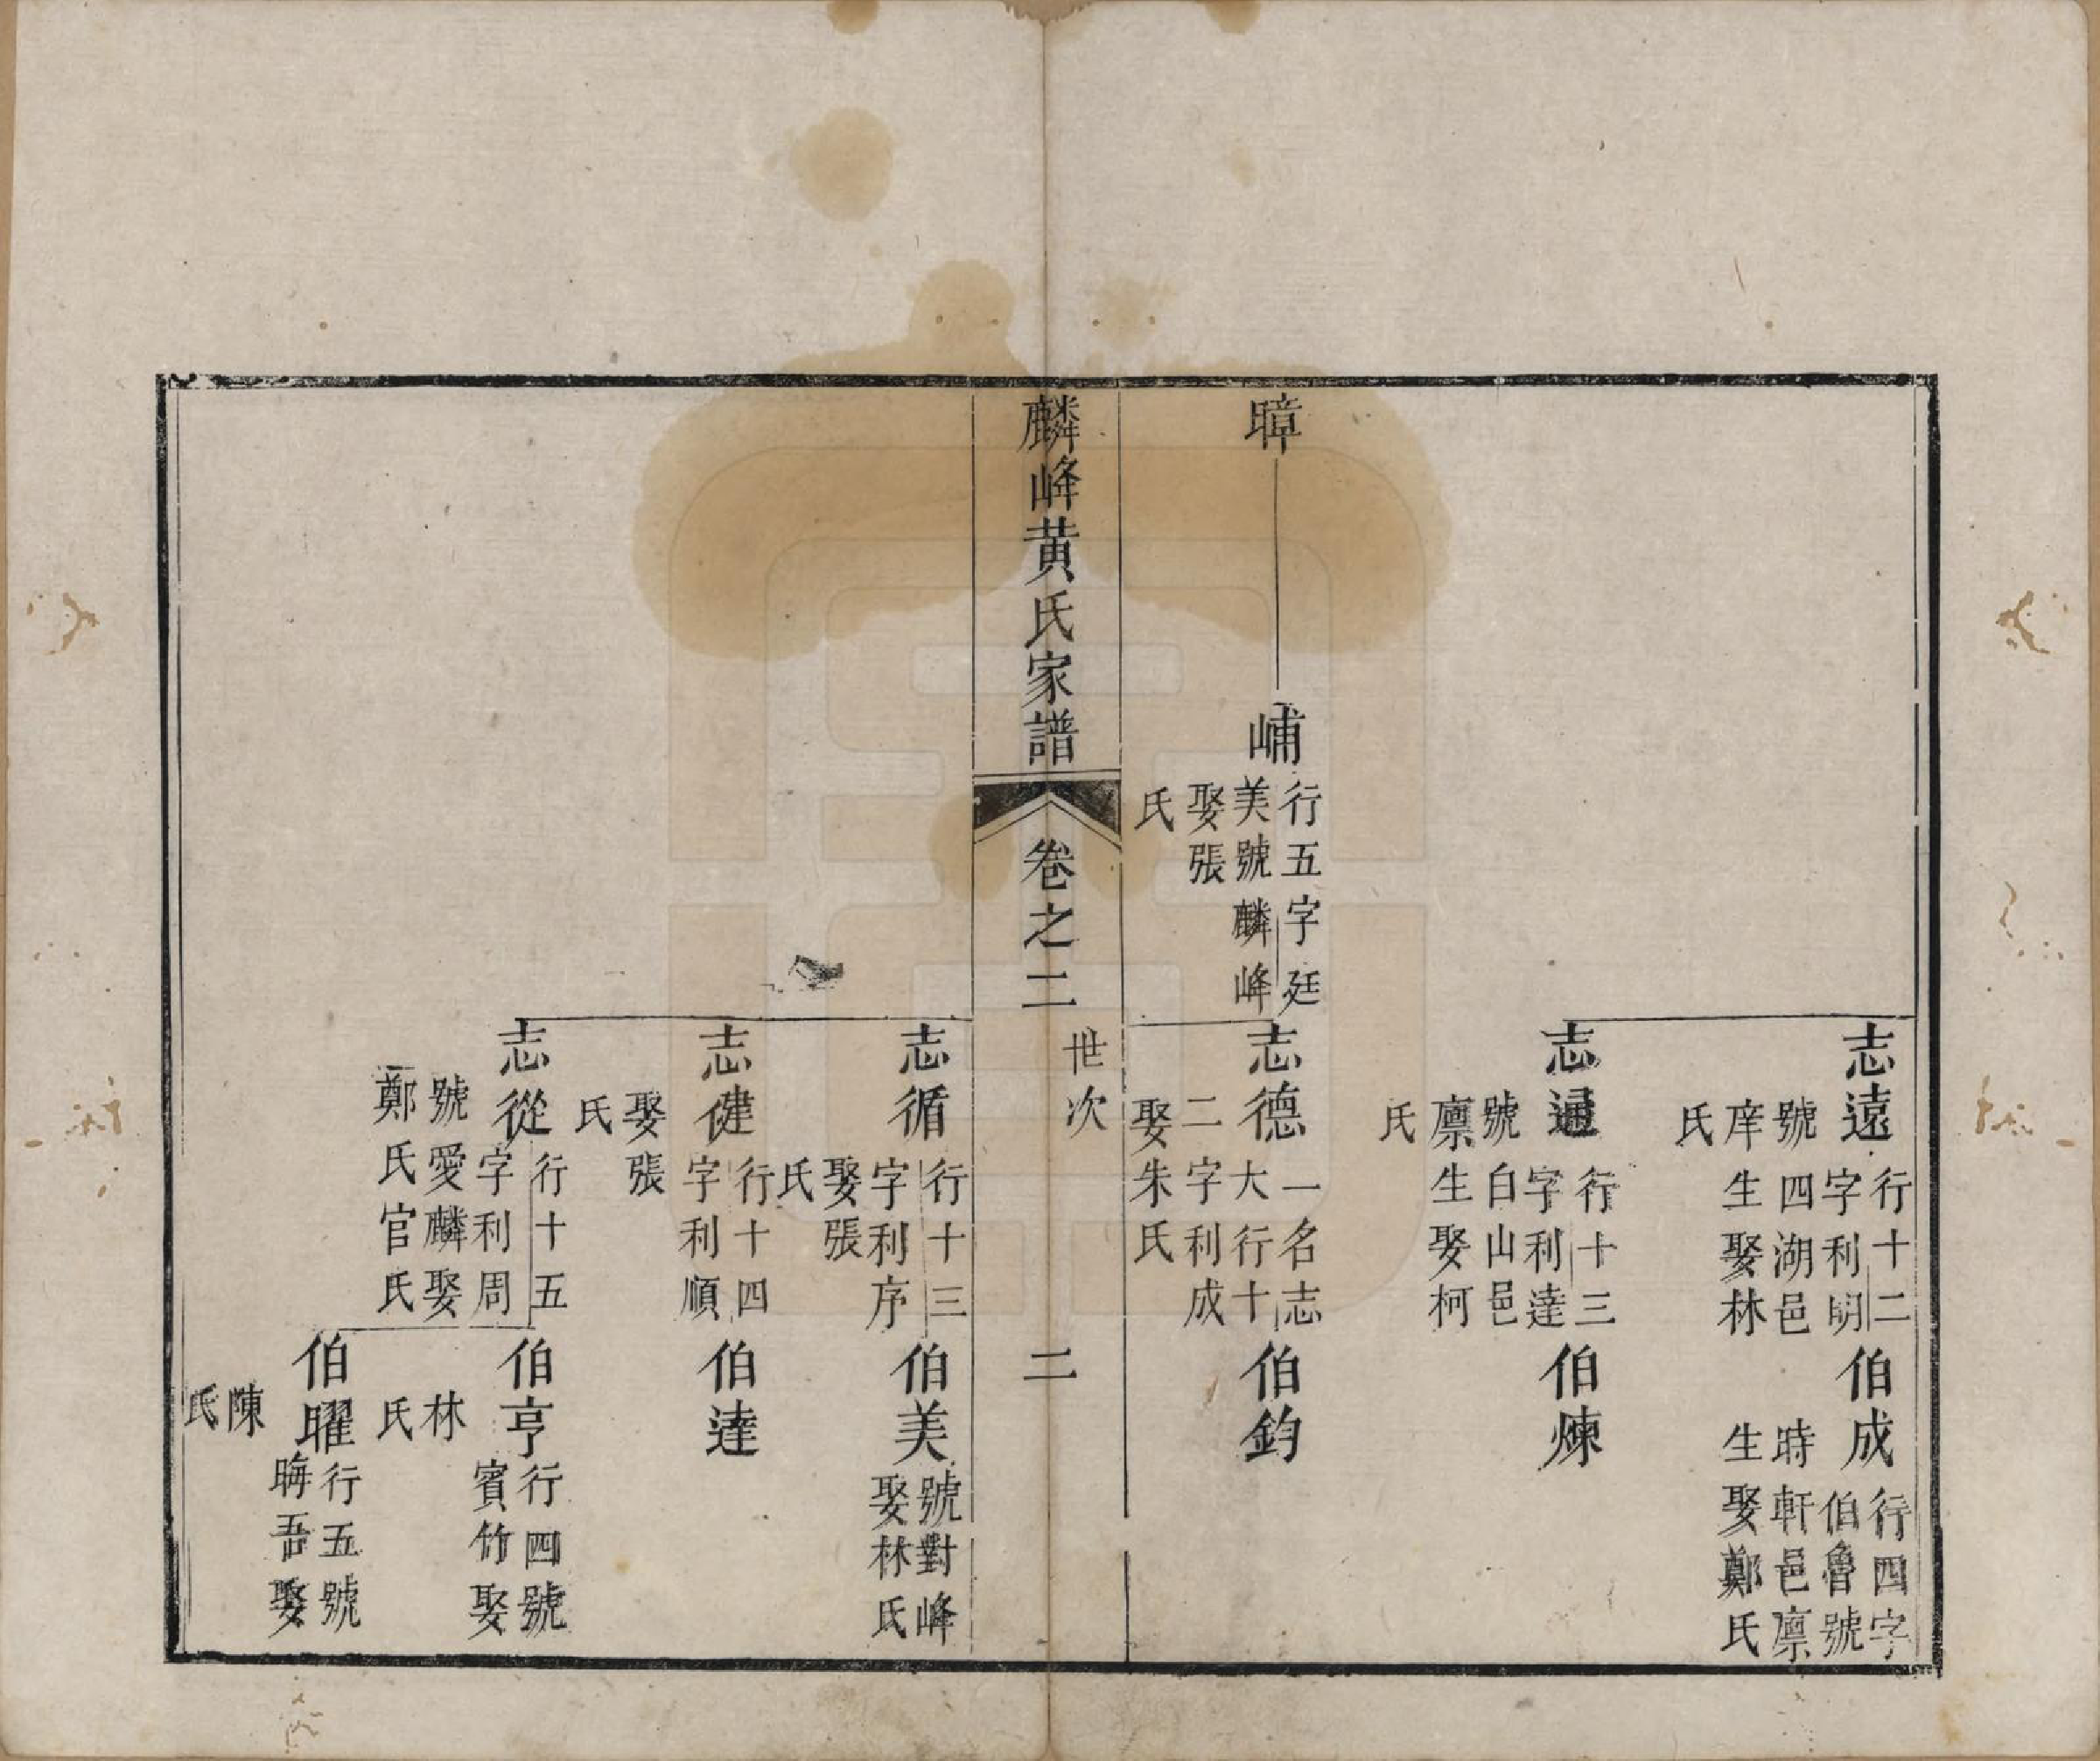 志遠
行十二
字利明
號四湖邑
庠生娶林
氏
伯成
行四字
伯魯號
時軒邑廪
生娶鄭氏
志通
行十三
字利達
號白山邑
廪生娶柯
氏
伯煉
暲
峬
行五字廷
美號麟峰
娶張
氏
志德
一名志
大行十
二字利成
娶朱氏
伯鈞
麟峰黄氏家譜
卷之二
世次
二
志循
行十三
字利序
娶張
氏
伯美
號對峰
娶林氏
志健
行十四
字利順
娶張
氏
伯達
志從
行十五
字利周
號愛麟娶
鄭氏官氏
伯亨
行四號
賓竹娶
林
氏
伯曜
行五號
晦吾娶
陳
氏